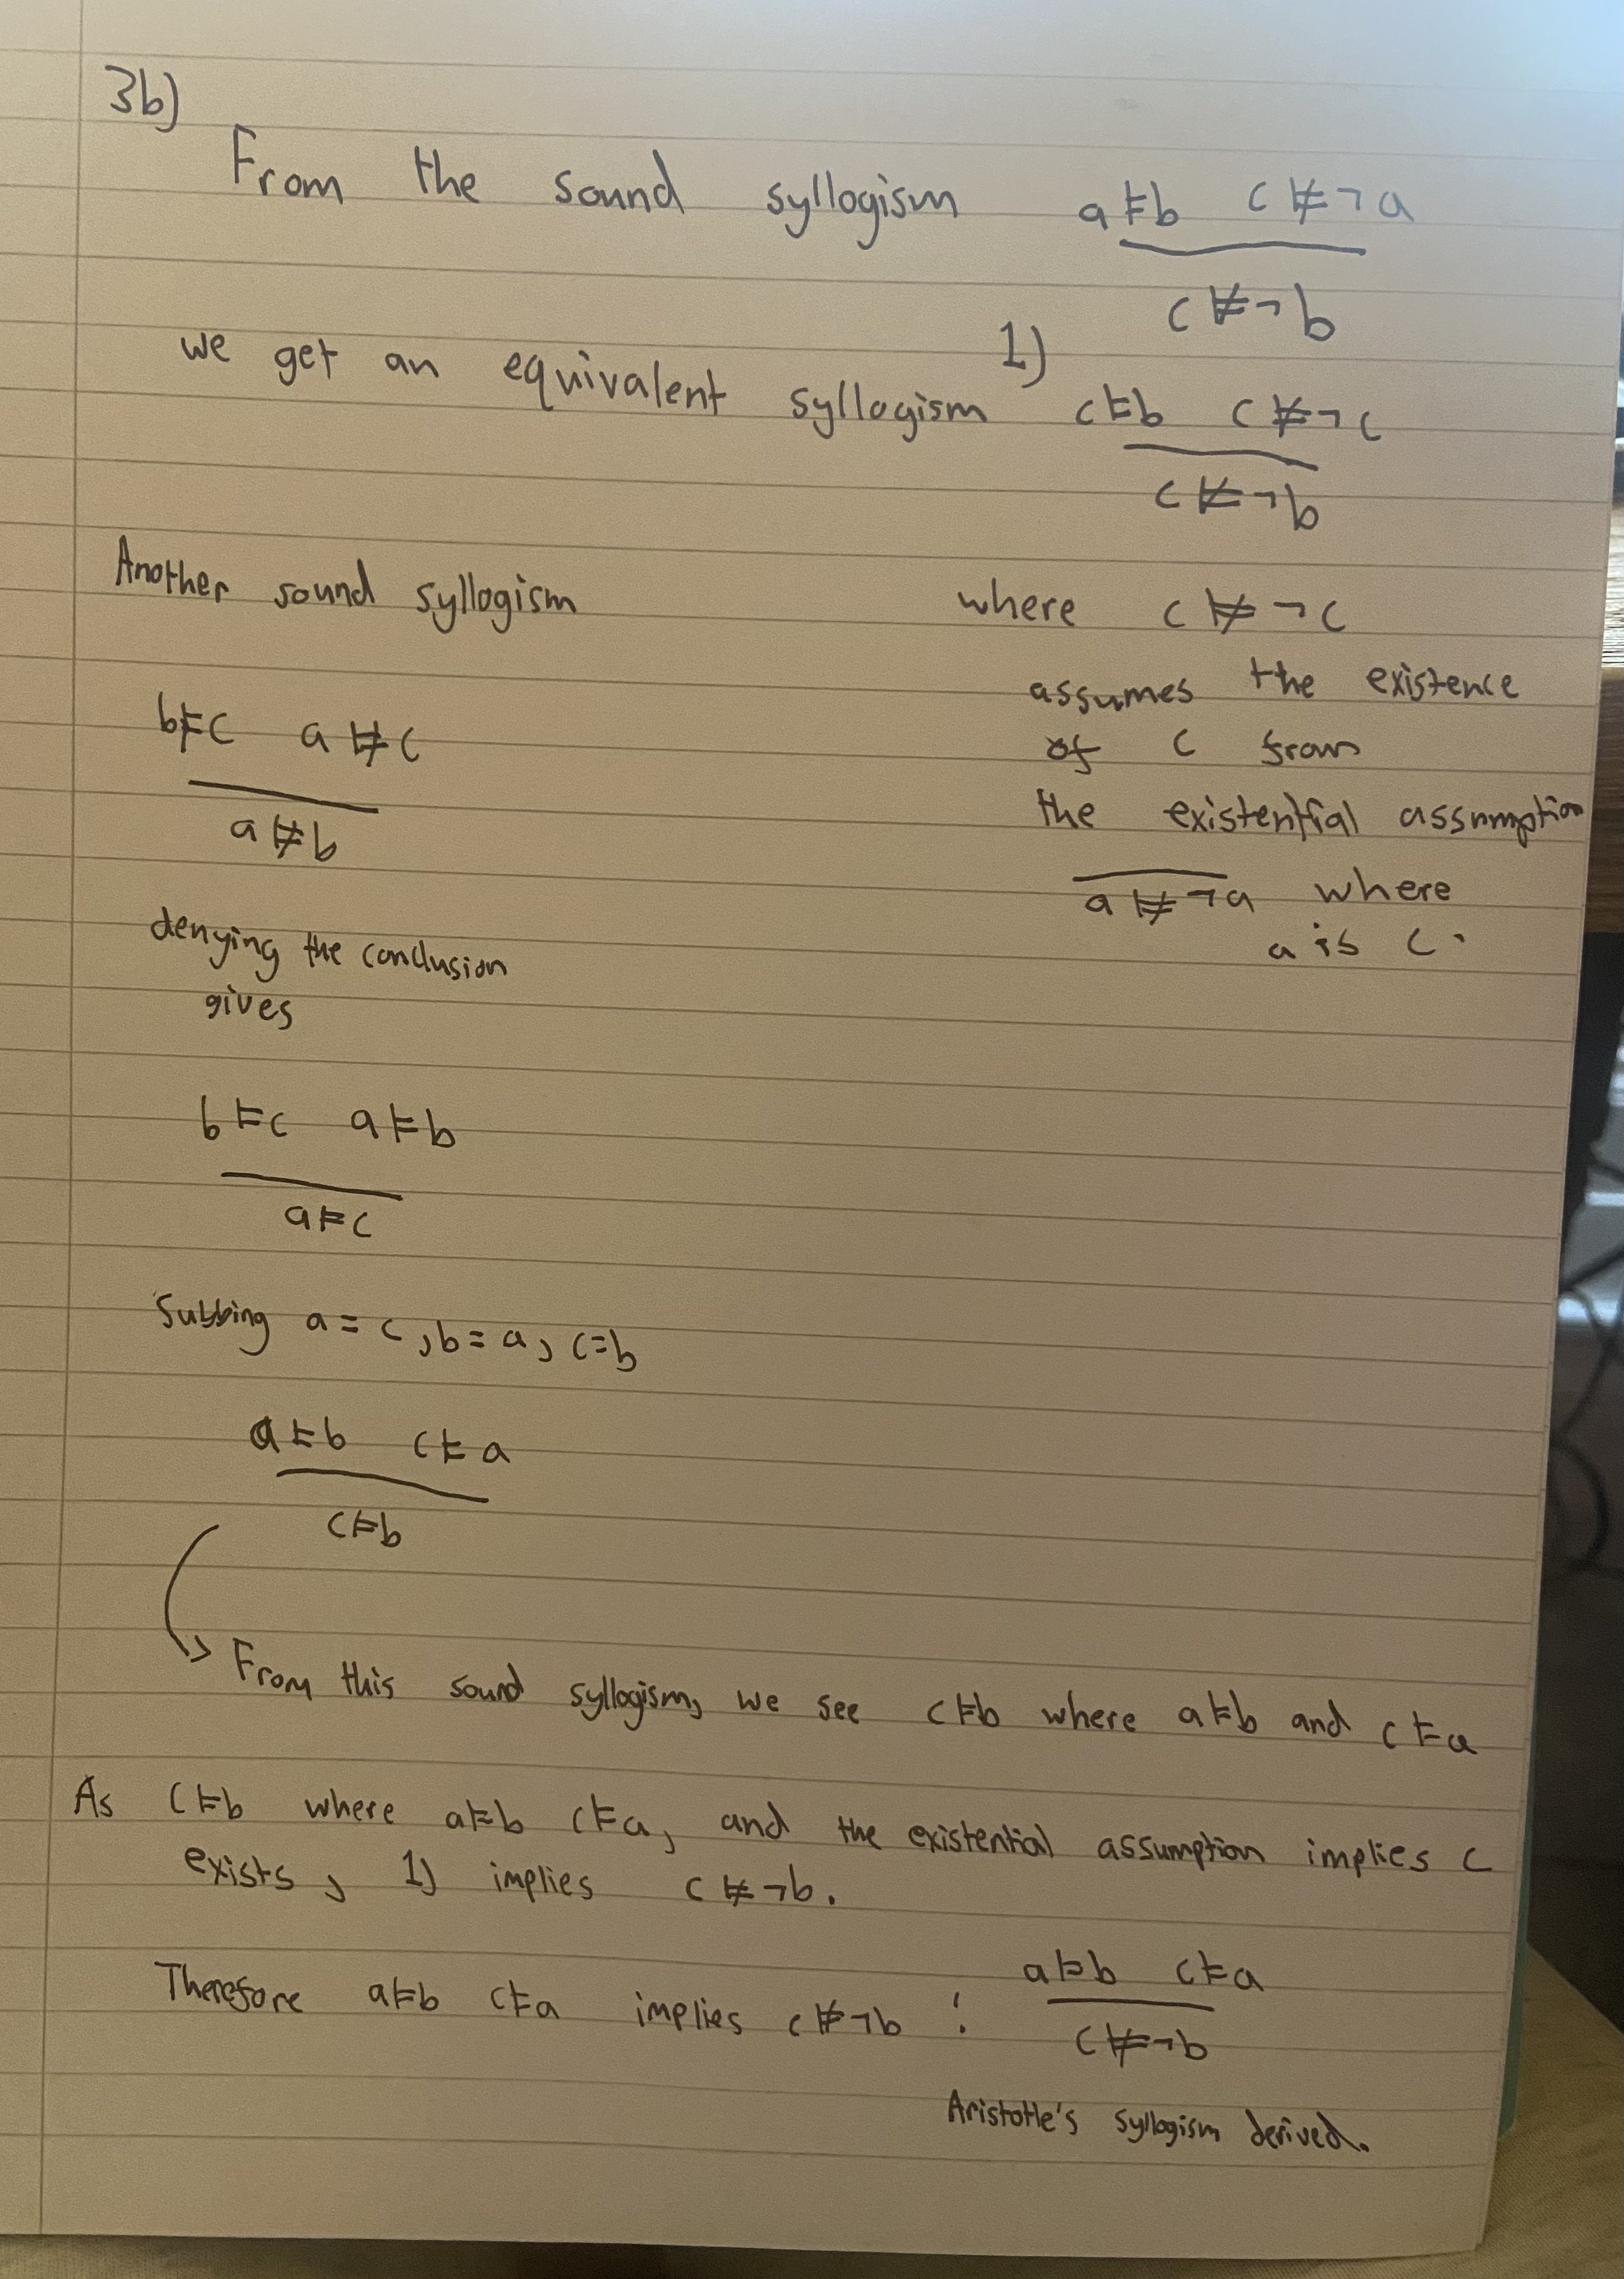 3b)
From the sound syllogism a ⊨ b c ⊭ ¬a
c ⊭ ¬b
we get an equivalent syllogism 1) c ⊨ b c ⊭ ¬c
c ⊭ ¬b
where c ⊭ ¬c
assumes the existence
of c from
the existential assumption
a ⊭ ¬a where
a is c.
Another sound syllogism
b ⊨ c a ⊭ c
a ⊭ b
denying the conclusion
gives
b ⊨ c a ⊨ b
a ⊨ c
Subbing a = c, b = a, c = b
a ⊨ b c ⊨ a
c ⊨ b
From this sound syllogism, we see c ⊨ b where a ⊨ b and c ⊨ a
As c ⊨ b where a ⊨ b c ⊨ a, and the existential assumption implies c
exists, 1) implies c ⊭ ¬b.
Therefore a ⊨ b c ⊨ a implies c ⊭ ¬b : a ⊨ b c ⊨ a
c ⊭ ¬b
Aristotle's syllogism derived.